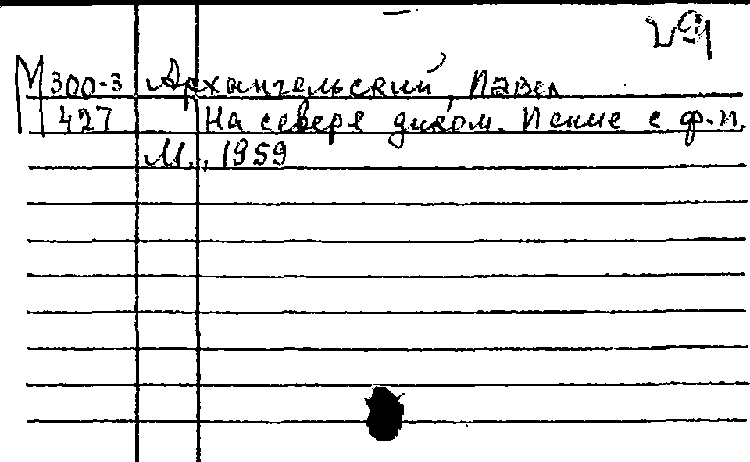 М 300-3 Архангельский, Павел
427 На севере диком. Пение с ф.п.
М., 1959